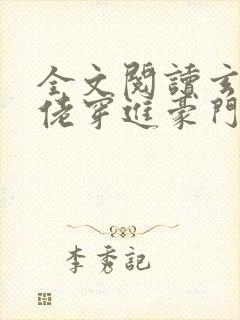 全文閱讀玄
佬穿進豪門
李秀記